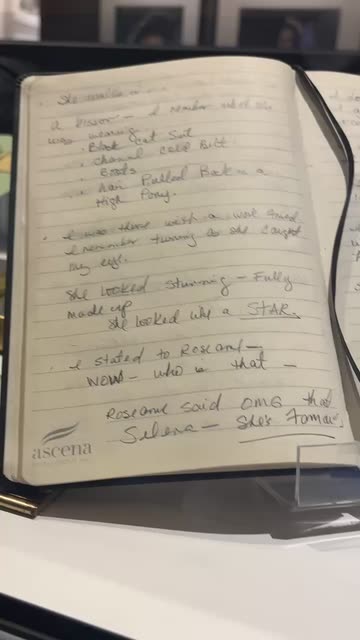 • She walks
a Kisser — I remember what she
was wearing
• Black Cat Suit
• Chanel Gold Belt
• Boots
• Hair Pulled Back in a
High Pony.
• I was there with a work friend
I remember turning as she caught
my eye.
She looked Stunning — Fully
made up
She looked like a STAR.
• I stated to Roseann —
WOW — who is that —
Roseann said OMG that
Selena — She's Famous.
ascena